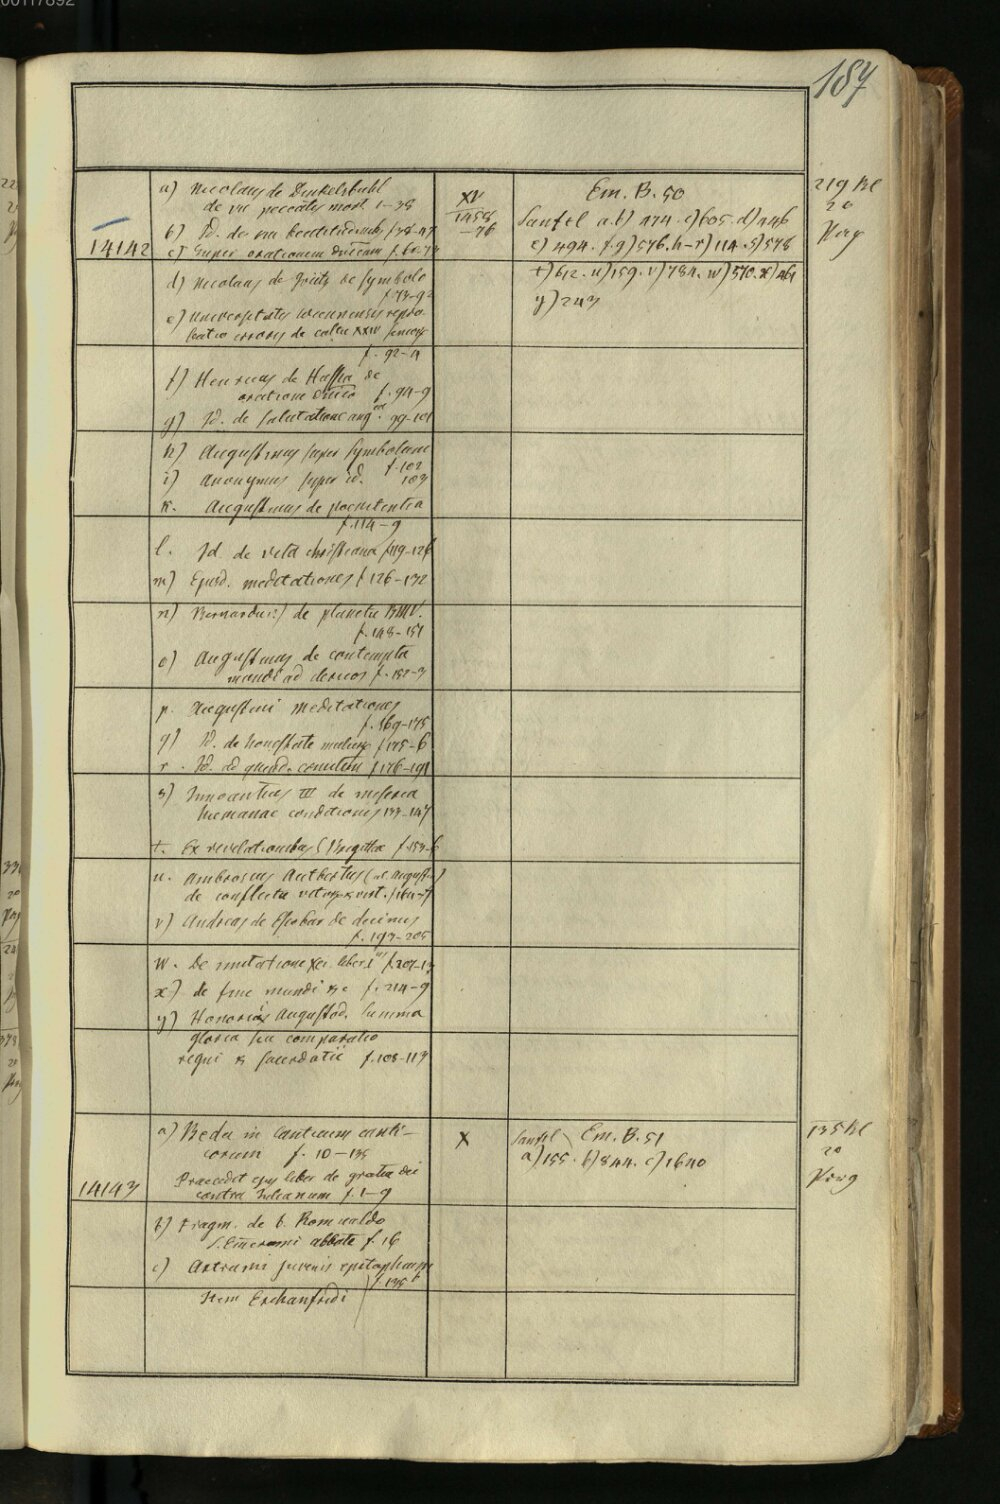 187
14142
a) Nicolaus de Dinkelsbuhl
de VII peccatis mort. 1-38
b) Id. de VIII beatitudinibus f. 38-47
c) Super orationem dnicam f. 60-72
d) Nicolaus de Graetz de Symbolo
f. 73-92
e) Universitatis viennensis repro
batio erroris de caltu XXIV
f. 92-4
f) Henricus de Hassia de
oratione dnica f. 94-9
g) Id. de Salutatione ang. 99-101
h) Augustinus super symbolum
f. 102
i) Anonymus super id. 103
k. Augustinus de poenitentia
f. 114-9
l. Id. de vita christiana f. 119-126
m) Ejusd. meditationes f. 126-132
n) Bernardus de planctu BMV.
f. 148-151
o) Augustinus de contemptu
mundi ad clericos f. 152-3
p. Augustini meditationes
f. 169-175
q) Id. de honestate mulierum f. 175-6
r. Id. ad quend. comitem f. 176-191
s) Innocentius III de miseria
humanae conditionis 133-147
t. Ex revelationibus S Brigittae f. 153-6
u. Ambrosius Autbertus (al. August.)
de conflictu vitior. & virt. f. 164-7
v) Andreas de Escobar de decimis
f. 193-205
w. De imitatione Xti liber I f. 207-13
x) de fine mundi &c f. 214-9
y) Honorii Augustod. Summa
gloria seu comparatio
regni & sacerdotii f. 108-113
XV
1458
-76
Em. B. 50
Sanftl a.b) 474. c) 605. d) 446
e) 494. f.g) 576. h-r) 114. s) 578
t) 612. u) 159. v) 784. w) 570. x) 461
y) 243
219 Bl
2o
Perg
14143
a) Beda in Canticum canti-
corum f. 10-135
Praecedit ejus liber de gratia dei
contra Julianum f. 1-9
b) Fragm. de b. Romualdo
S. Emerami abbate f. 16
c) Adrami juvenis epitaphium
f. 135b
Item Erchanfridi
X
Sanftl Em. B. 51
a) 155. b) 844. c) 1640
135 Bl
2o
Perg